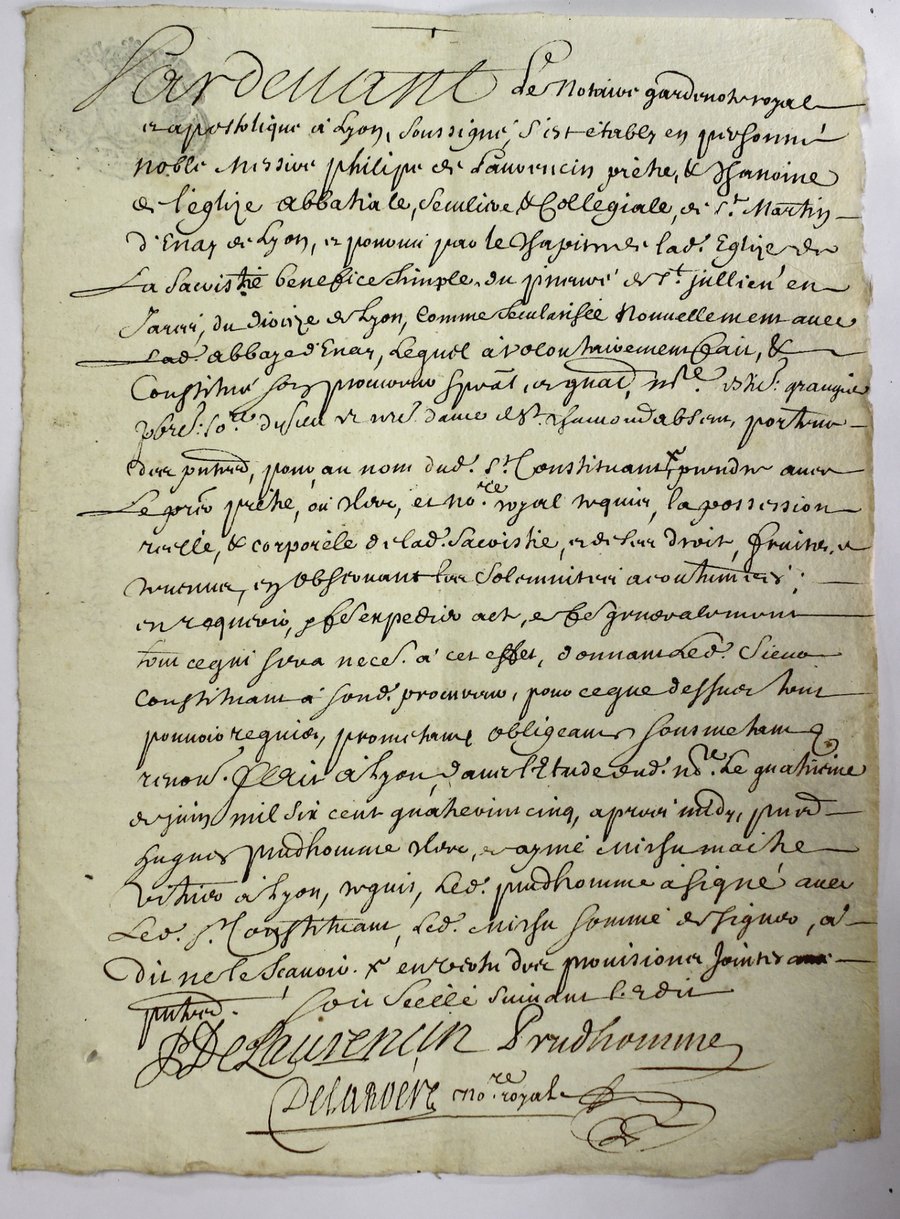 Pardevant Le Notaire gardenote royal
et apostolique à Lyon, soussigné, s'est étably en personne
noble Messire philipe de Laurencin prêtre, & Chanoine
de l'églize abbatiale, seculiere & Collégiale, de St. Martin
d'Enay de Lyon, et pourvu par le Chapitre de lad. Eglize de
La Sacristie benefice simple, du prieuré de St. jullien en
Jarés, du dioceze de Lyon, comme secularisée nouvellement avec
Lad. abbaye d'Enay, Lequel à volontairement fait, &
Constitué son procureur spécâl, et gnâl, Mre.
absent, porteur
des pntes, pour au nom dud. sr. Constituant x prendre avec
Le pr. prêtre, ou clerc, et nore. royal requis, la possession
réelle, & corporéle de lad. Sacristie, et de ses droit, fruits, et
revenus, en observant les solemnitéés acoutumées,
en requerir, & se expedier act, et generalement
tout ce qui sera neces. à cet effet, donnant Led. Sieur
Constituant à sond. procureur, pour ce que dessus tout
pouvoir requis, prometant obligeant soumetant
renon. Fait à Lyon, dans l'Etude dud. nore. Le quatrieme
de juin mil six cent quatrevint cinq, apres midy, pnts
hugues prudhomme clerc, et aymé maitre
vitrier à Lyon, requis, Led. prudhomme à signé avec
Led. sr. Constituant, Led. sommé de signer, à
dit ne le sçavoir. x en vertu des provisions jointes aux
pntes. soit scellé suivant l'edit
P DeLaurencin Prudhomme
Delarvére nore. royal